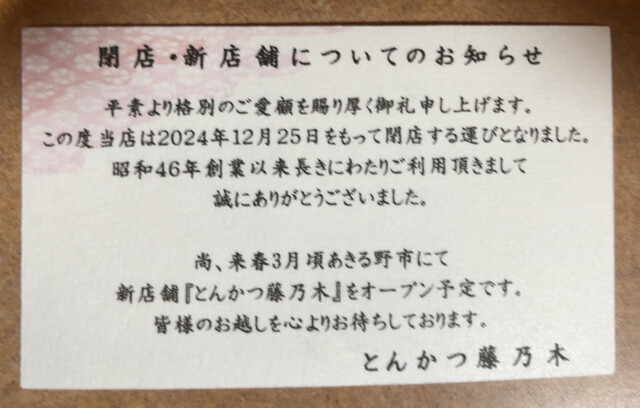 閉店・新店舗についてのお知らせ
平素より格別のご愛顧を賜り厚く御礼申し上げます。
この度当店は2024年12月25日をもって閉店する運びとなりました。
昭和46年創業以来長きにわたりご利用頂きまして
誠にありがとうございました。
尚、来春3月頃あきる野市にて
新店舗『とんかつ藤乃木』をオープン予定です。
皆様のお越しを心よりお待ちしております。
とんかつ藤乃木